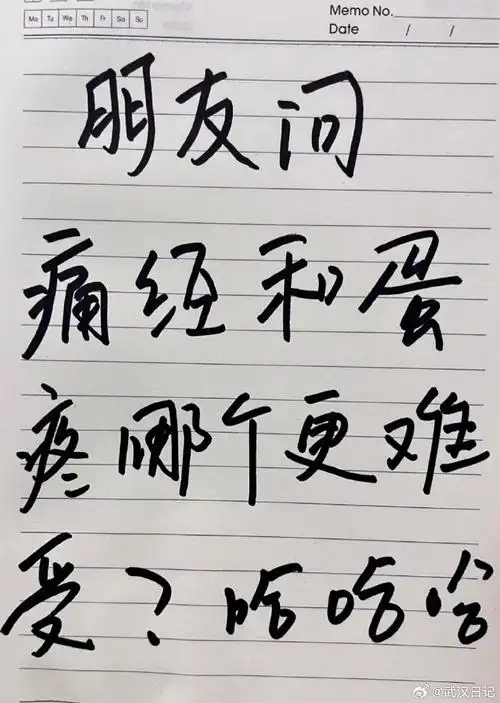 Mo Tu We Th Fr Sa Su
Memo No.
Date / /
朋友问
痛经和蛋
疼哪个更难
受？哈哈哈
@武汉日记